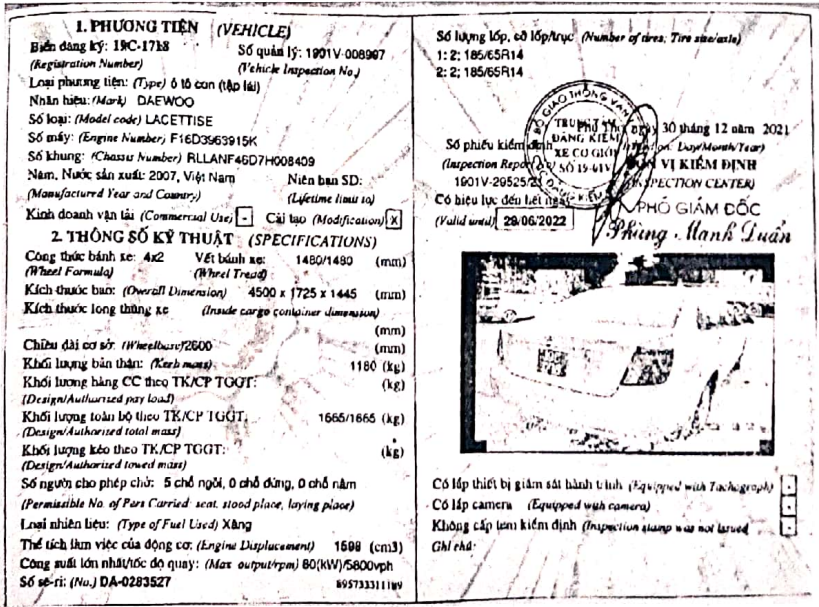 1. PHƯƠNG TIỆN (VEHICLE)
Biển đăng ký: 19C-17 8 Số quản lý: 1901V-008997
(Registration Number) (Vehicle Inspection No.)
Loại phương tiện: (Type) ô tô con (tập lái)
Nhãn hiệu: (Mark) DAEWOO
Số loại: (Model code) LACETTISE
Số máy: (Engine Number) F16D3963915K
Số khung: (Chassis Number) RLLANF46D7H008409
Năm, Nước sản xuất: 2007, Việt Nam Niên hạn SD:
(Manufactured Year and Country) (Lifetime limit to)
Kinh doanh vận tải (Commercial Use) - Cải tạo (Modification) X
2. THÔNG SỐ KỸ THUẬT (SPECIFICATIONS)
Công thức bánh xe: 4x2 Vết bánh xe: 1480/1480 (mm)
(Wheel Formula) (Wheel Tread)
Kích thước bao: (Overall Dimension) 4500 x 1725 x 1445 (mm)
Kích thước lòng thùng xe (Inside cargo container dimension)
(mm)
Chiều dài cơ sở: (Wheelbase) 2600 (mm)
Khối lượng bản thân: (Kerb mass) 1180 (kg)
Khối lượng hàng CC theo TK/CP TGGT: (kg)
(Design/Authorized pay load)
Khối lượng toàn bộ theo TK/CP TGGT: 1665/1665 (kg)
(Design/Authorized total mass)
Khối lượng kéo theo TK/CP TGGT: (kg)
(Design/Authorized towed mass)
Số người cho phép chở: 5 chỗ ngồi, 0 chỗ đứng, 0 chỗ nằm
(Permissible No. of Pers Carried: seat, stood place, laying place)
Loại nhiên liệu: (Type of Fuel Used) Xăng
Thể tích làm việc của động cơ: (Engine Displacement) 1598 (cm3)
Công suất lớn nhất/tốc độ quay: (Max. output/rpm) 80(kW)/5800vph
Số sê-ri: (No.) DA-0283527 895733311189
Số lượng lốp, cỡ lốp/trục (Number of tires; Tire size/axle)
1: 2; 185/65R14
2: 2; 185/65R14
BỘ GIAO THÔNG VẬN
TRUNG TÂM
ĐĂNG KIỂM
XE CƠ GIỚI
SỐ 19-01V
CỤC ĐĂNG KIỂM
Phú Thọ, ngày 30 tháng 12 năm 2021
Số phiếu kiểm định Day/Month/Year)
(Inspection Report ĐƠN VỊ KIỂM ĐỊNH
1901V-29525/21 (INSPECTION CENTER)
Có hiệu lực đến hết ngày PHÓ GIÁM ĐỐC
(Valid until) 28/06/2022
Phùng Mạnh Tuấn
Có lắp thiết bị giám sát hành trình (Equipped with Tachograph) -
Có lắp camera (Equipped with camera) -
Không cấp tem kiểm định (Inspection stamp was not issued -
Ghi chú: